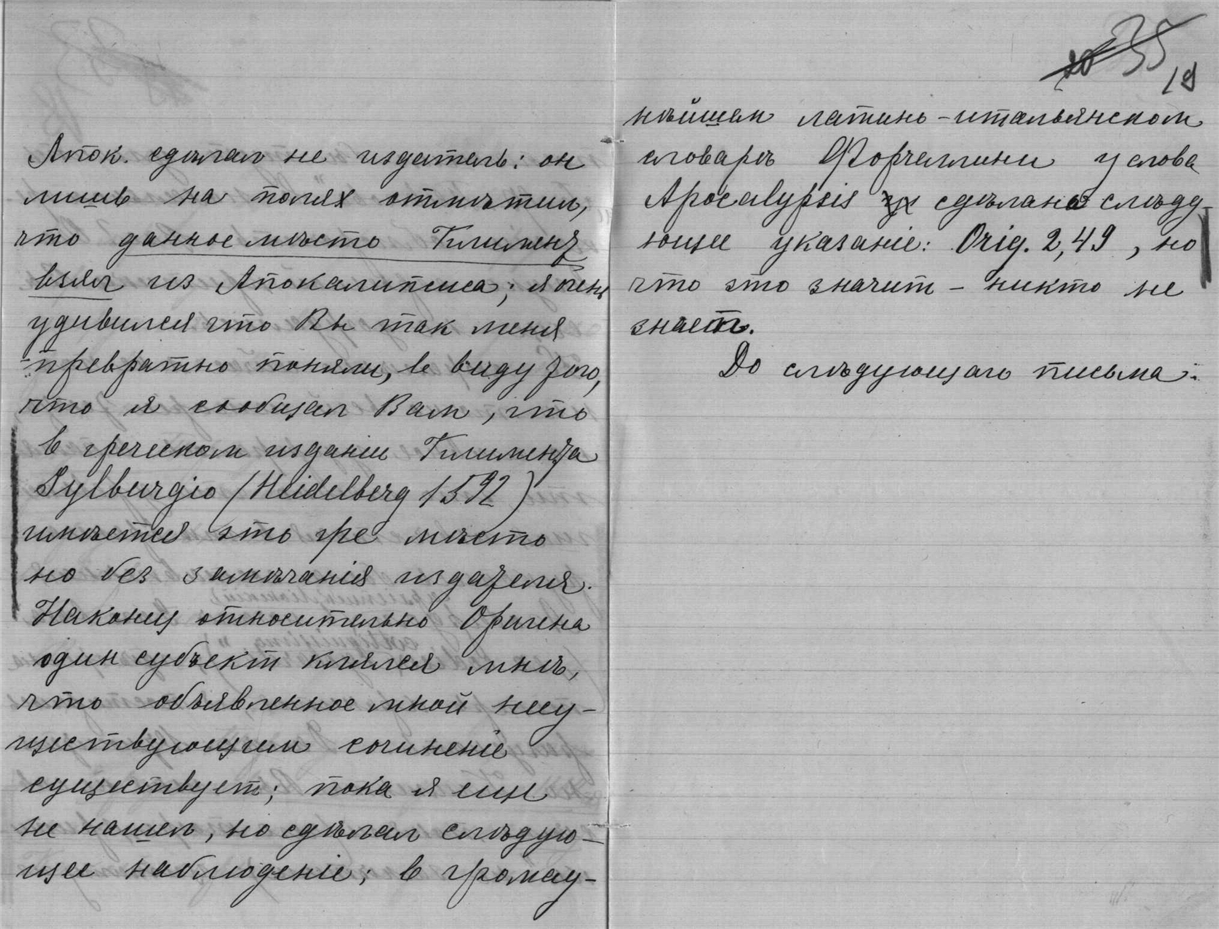 Апок. сдѣлал не издатель: он
лишь на полях отмѣтил,
что данное мѣсто Климент
взял из Апокалипсиса; я очень
удивился что Вы так меня
превратно поняли, в виду того,
что я сообщал Вам, что
в греческом изданіи Климента
Sylburgio (Heidelberg 1592)
имѣется это гре мѣсто
но без замѣчанія издателя.
Наконец относительно Оригена
один субъект клялся мнѣ,
что объявленное мной несу-
ществующим сочиненіе
существует; пока я еще
не нашел, но сдѣлал слѣдую-
щее наблюденіе; в громад-
20 35
19
нѣйшем латино-итальянском
словарѣ Форчеллини у слова
Apocalypsis сдѣлано слѣду-
ющее указаніе: Orig. 2,49, но
что это значит – никто не
знает.
До слѣдующаго письма.